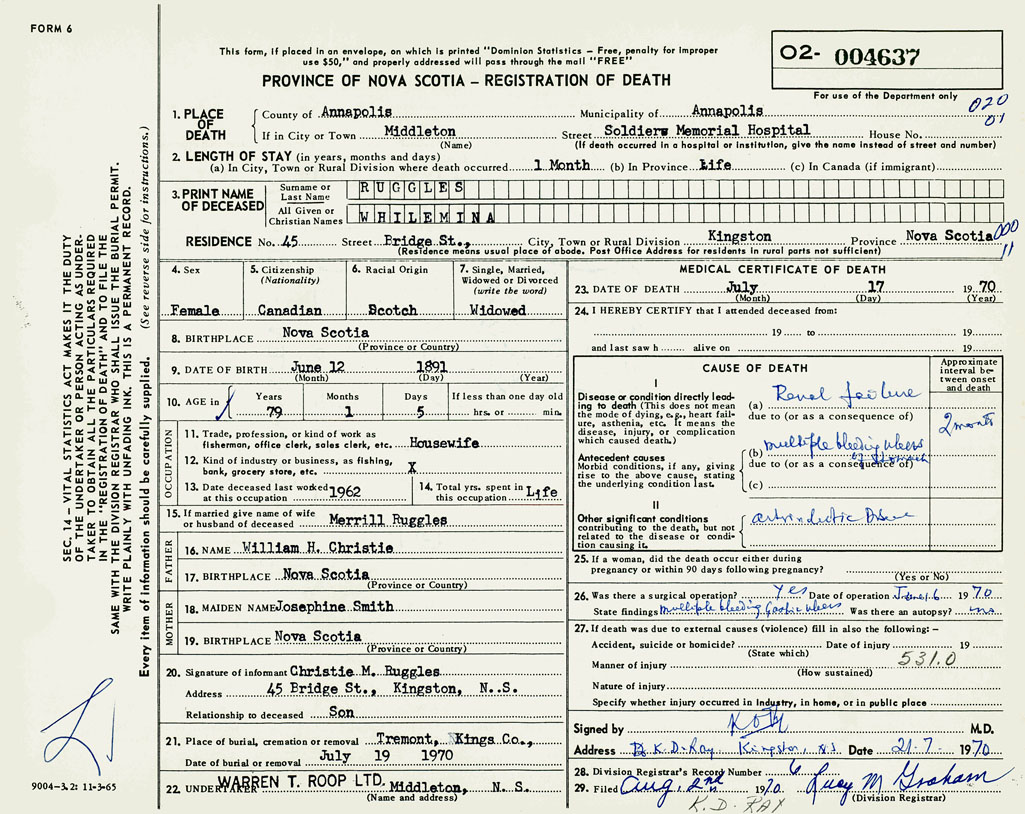 FORM 6
This form, if placed in an envelope, on which is printed "Dominion Statistics – Free, penalty for improper
use $50," and properly addressed will pass through the mail "FREE"
PROVINCE OF NOVA SCOTIA – REGISTRATION OF DEATH
O2- 004637
For use of the Department only
020
01
SEC. 14 – VITAL STATISTICS ACT MAKES IT THE DUTY
OF THE UNDERTAKER OR PERSON ACTING AS UNDER-
TAKER TO OBTAIN ALL THE PARTICULARS REQUIRED
IN THE "REGISTRATION OF DEATH" AND TO FILE THE
SAME WITH THE DIVISION REGISTRAR WHO SHALL ISSUE THE BURIAL PERMIT.
WRITE PLAINLY WITH UNFADING INK. THIS IS A PERMANENT RECORD.
Every item of information should be carefully supplied. (See reverse side for instructions.)
1. PLACE OF DEATH
County of Annapolis Municipality of Annapolis
If in City or Town Middleton Street Soldiers Memorial Hospital House No.
(Name) (If death occurred in a hospital or institution, give the name instead of street and number)
2. LENGTH OF STAY (in years, months and days)
(a) In City, Town or Rural Division where death occurred 1 Month (b) In Province Life (c) In Canada (if immigrant)
3. PRINT NAME OF DECEASED
Surname or Last Name RUGGLES
All Given or Christian Names WHILEMINA
RESIDENCE No. 45 Street Bridge St., City, Town or Rural Division Kingston Province Nova Scotia 000
11
(Residence means usual place of abode. Post Office Address for residents in rural parts not sufficient)
4. Sex
Female
5. Citizenship
(Nationality)
Canadian
6. Racial Origin
Scotch
7. Single, Married,
Widowed or Divorced
(write the word)
Widowed
8. BIRTHPLACE Nova Scotia
(Province or Country)
9. DATE OF BIRTH June 12 1891
(Month) (Day) (Year)
10. AGE in
Years Months Days If less than one day old
79 1 5 hrs. or min.
OCCUPATION
11. Trade, profession, or kind of work as
fisherman, office clerk, sales clerk, etc. Housewife
12. Kind of industry or business, as fishing,
bank, grocery store, etc. X
13. Date deceased last worked
at this occupation 1962
14. Total yrs. spent in
this occupation Life
15. If married give name of wife
or husband of deceased Merrill Ruggles
FATHER
16. NAME William H. Christie
17. BIRTHPLACE Nova Scotia
(Province or Country)
MOTHER
18. MAIDEN NAME Josephine Smith
19. BIRTHPLACE Nova Scotia
(Province or Country)
20. Signature of informant Christie M. Ruggles
Address 45 Bridge St., Kingston, N..S.
Relationship to deceased Son
21. Place of burial, cremation or removal Tremont, Kings Co.,
Date of burial or removal July 19 1970
22. UNDERTAKER WARREN T. ROOP LTD. Middleton, N. S.
(Name and address)
9004–3.2: 11-3-65
MEDICAL CERTIFICATE OF DEATH
23. DATE OF DEATH July 17 1970
(Month) (Day) (Year)
24. I HEREBY CERTIFY that I attended deceased from:
19 to 19
and last saw h alive on 19
CAUSE OF DEATH
Approximate
interval be-
tween onset
and death
I
Disease or condition directly lead-
ing to death (This does not mean
the mode of dying, e.g., heart fail-
ure, asthenia, etc. It means the
disease, injury, or complication
which caused death.)
(a) Renal failure
due to (or as a consequence of)
2 months
Antecedent causes
Morbid conditions, if any, giving
rise to the above cause, stating
the underlying condition last.
(b) multiple bleeding ulcers
of stomach
due to (or as a consequence of)
(c)
II
Other significant conditions
contributing to the death, but not
related to the disease or condi-
tion causing it.
25. If a woman, did the death occur either during
pregnancy or within 90 days following pregnancy?
(Yes or No)
26. Was there a surgical operation? Yes Date of operation 1970
State findings multiple bleeding Gastric ulcers Was there an autopsy? no
27. If death was due to external causes (violence) fill in also the following: –
Accident, suicide or homicide? Date of injury 19
(State which) 531.0
Manner of injury
(How sustained)
Nature of injury
Specify whether injury occurred in industry, in home, or in public place
Signed by M.D.
Address Dr K.D. Ray Kingston, N.S. Date 21-7- 1970
28. Division Registrar's Record Number 6
29. Filed Aug. 2nd 1970. Lucy M Graham
(Division Registrar)
K. D. RAY